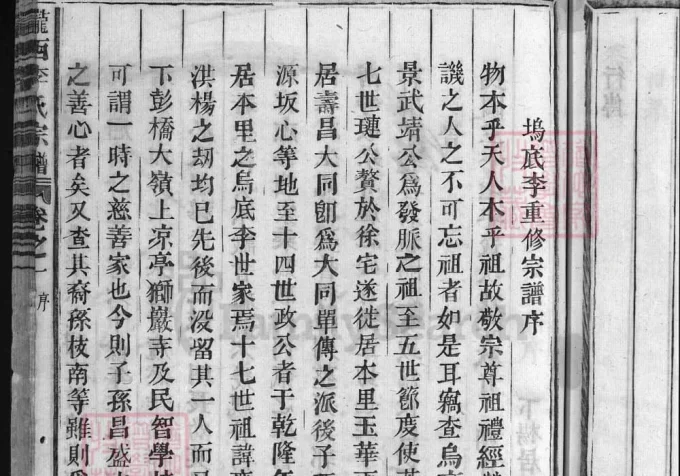 塢底李重修宗譜序
物本乎天人本乎祖故敬宗尊祖禮經
譏之人之不可忘祖者如是耳竊查烏
景武靖公爲發脈之祖至五世節度使
七世璉公贅於徐宅遂徙居本里玉華
居壽昌大同卽爲大同單傳之派後子
源坂心等地至十四世政公者于乾隆年
居本里之烏底李世家焉十七世祖諱
洪楊之刧均已先後而没留其一人而
下彭橋大嶺上凉亭獅巖寺及民智學
可謂一時之慈善家也今則子孫昌盛
之善心者矣又查其裔孫枝南等雖則
隴西李氏宗譜 卷之一 序